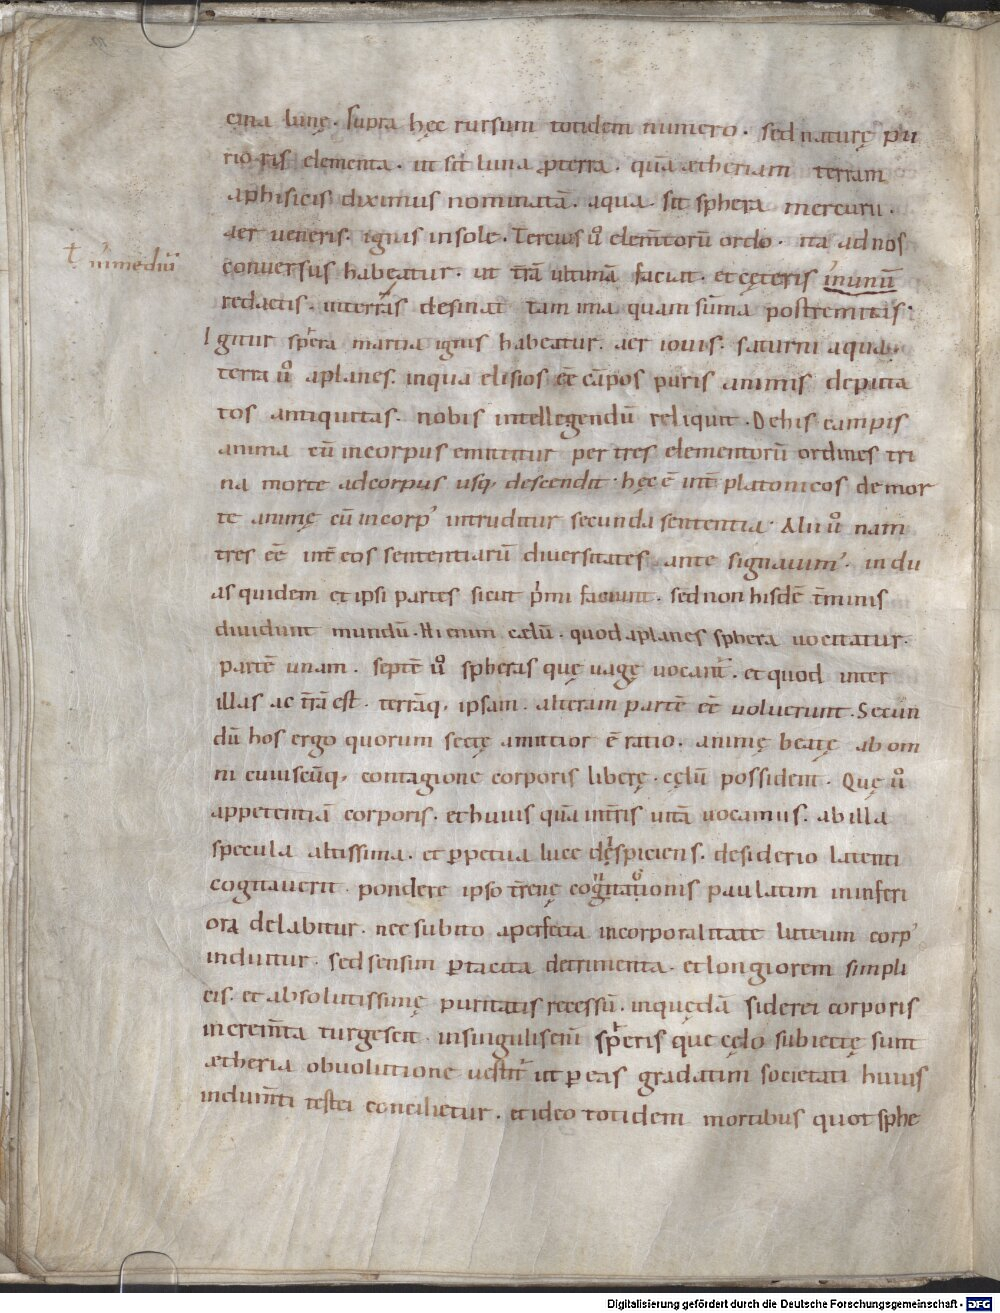 cina lunę. Supra hęc rursum totidem numero. sed naturę pu
rioris elementa. ut sit luna ꝓterra. quā ætheriam terram
aphisicis diximus nominatā. aqua. sit sphera mercurii.
aer ueneris. ignis insole. Tercius u° elem̄torū ordo. ita ad nos
ł inmediū
conuersus habeatur. ut t̄rā ultimā faciat. et cęteris inunū
redactis. interras desinat tam ima quam sūma postremitas.
Igitur spera martia ignis habeatur. aer iouis. saturni aqua.
terra u° aplanes. inqua elisios eē cāpos puris animis deputa
tos antiquitas. nobis intellegendū reliquit. Dehis campis
anima cū incorpus emittitur per tres elementorū ordines tri
na morte adcorpus usq; descendit. hęc ē int̄ platonicos de mor
te animę cū incorp' intruditur secunda sententia. Alii u° nam
tres eē int̄ eos sententiarū diuersitates ante signauim'. in du
as quidem et ipsi partes sicut p'mi faciunt. sed non hisdē t̄minis
diuidunt mundū. Hi enim cælū. quod aplanes sphera uocitatur.
partē unam. septē u° spheras quę uagę uocant'. et quod inter
illas ac t̄rā est. terrāq; ipsam. alteram partē eē uoluerunt. Secun
dū hos ergo quorum sectę amitior ē ratio. animę beatę ab om
ni cuiuscūq; contagione corporis liberę. cęlū possident. Quę u°
appetentiā corporis. et huius quā int̄ris uitā uocamus. ab illa
specula altissima. et ꝑpetua luce dęspiciens. desiderio latenti
cogitauerit. pondere ipso t̄renę cognationis paulatim in inferi
ora delabitur. nec subito aperfecta incorporalitate luteum corp'
induitur. sed sensim ꝑtacita detrimenta. et longiorem simpli
cis. et absolutissimę puritatis recessū. inquędā siderei corporis
increm̄ta turgescit. insingulis enī speris que cęlo subiectę sunt
ætheria obuolutione uestit' ut ꝑ eas gradatim societati huius
indum̄ti testei concilietur. et ideo totidem mortibus quot sphe
Digitalisierung gefördert durch die Deutsche Forschungsgemeinschaft - DFG